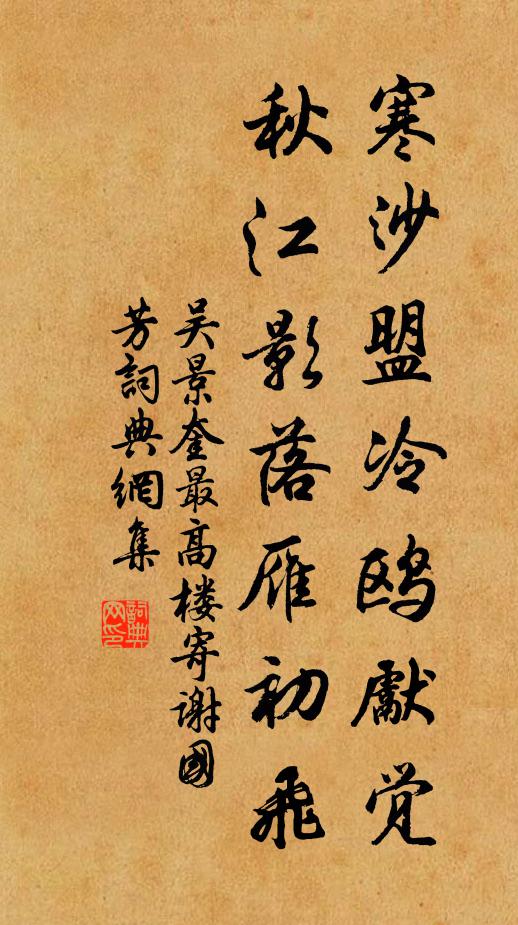 寒沙盟冷鸥獻觉
秋江影落雁初飛
吴景奎最高楼寄谢國
芳詞典網集
詞典网印